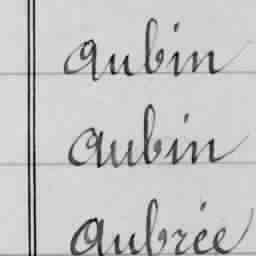 Aubin
Aubin
Aubrée